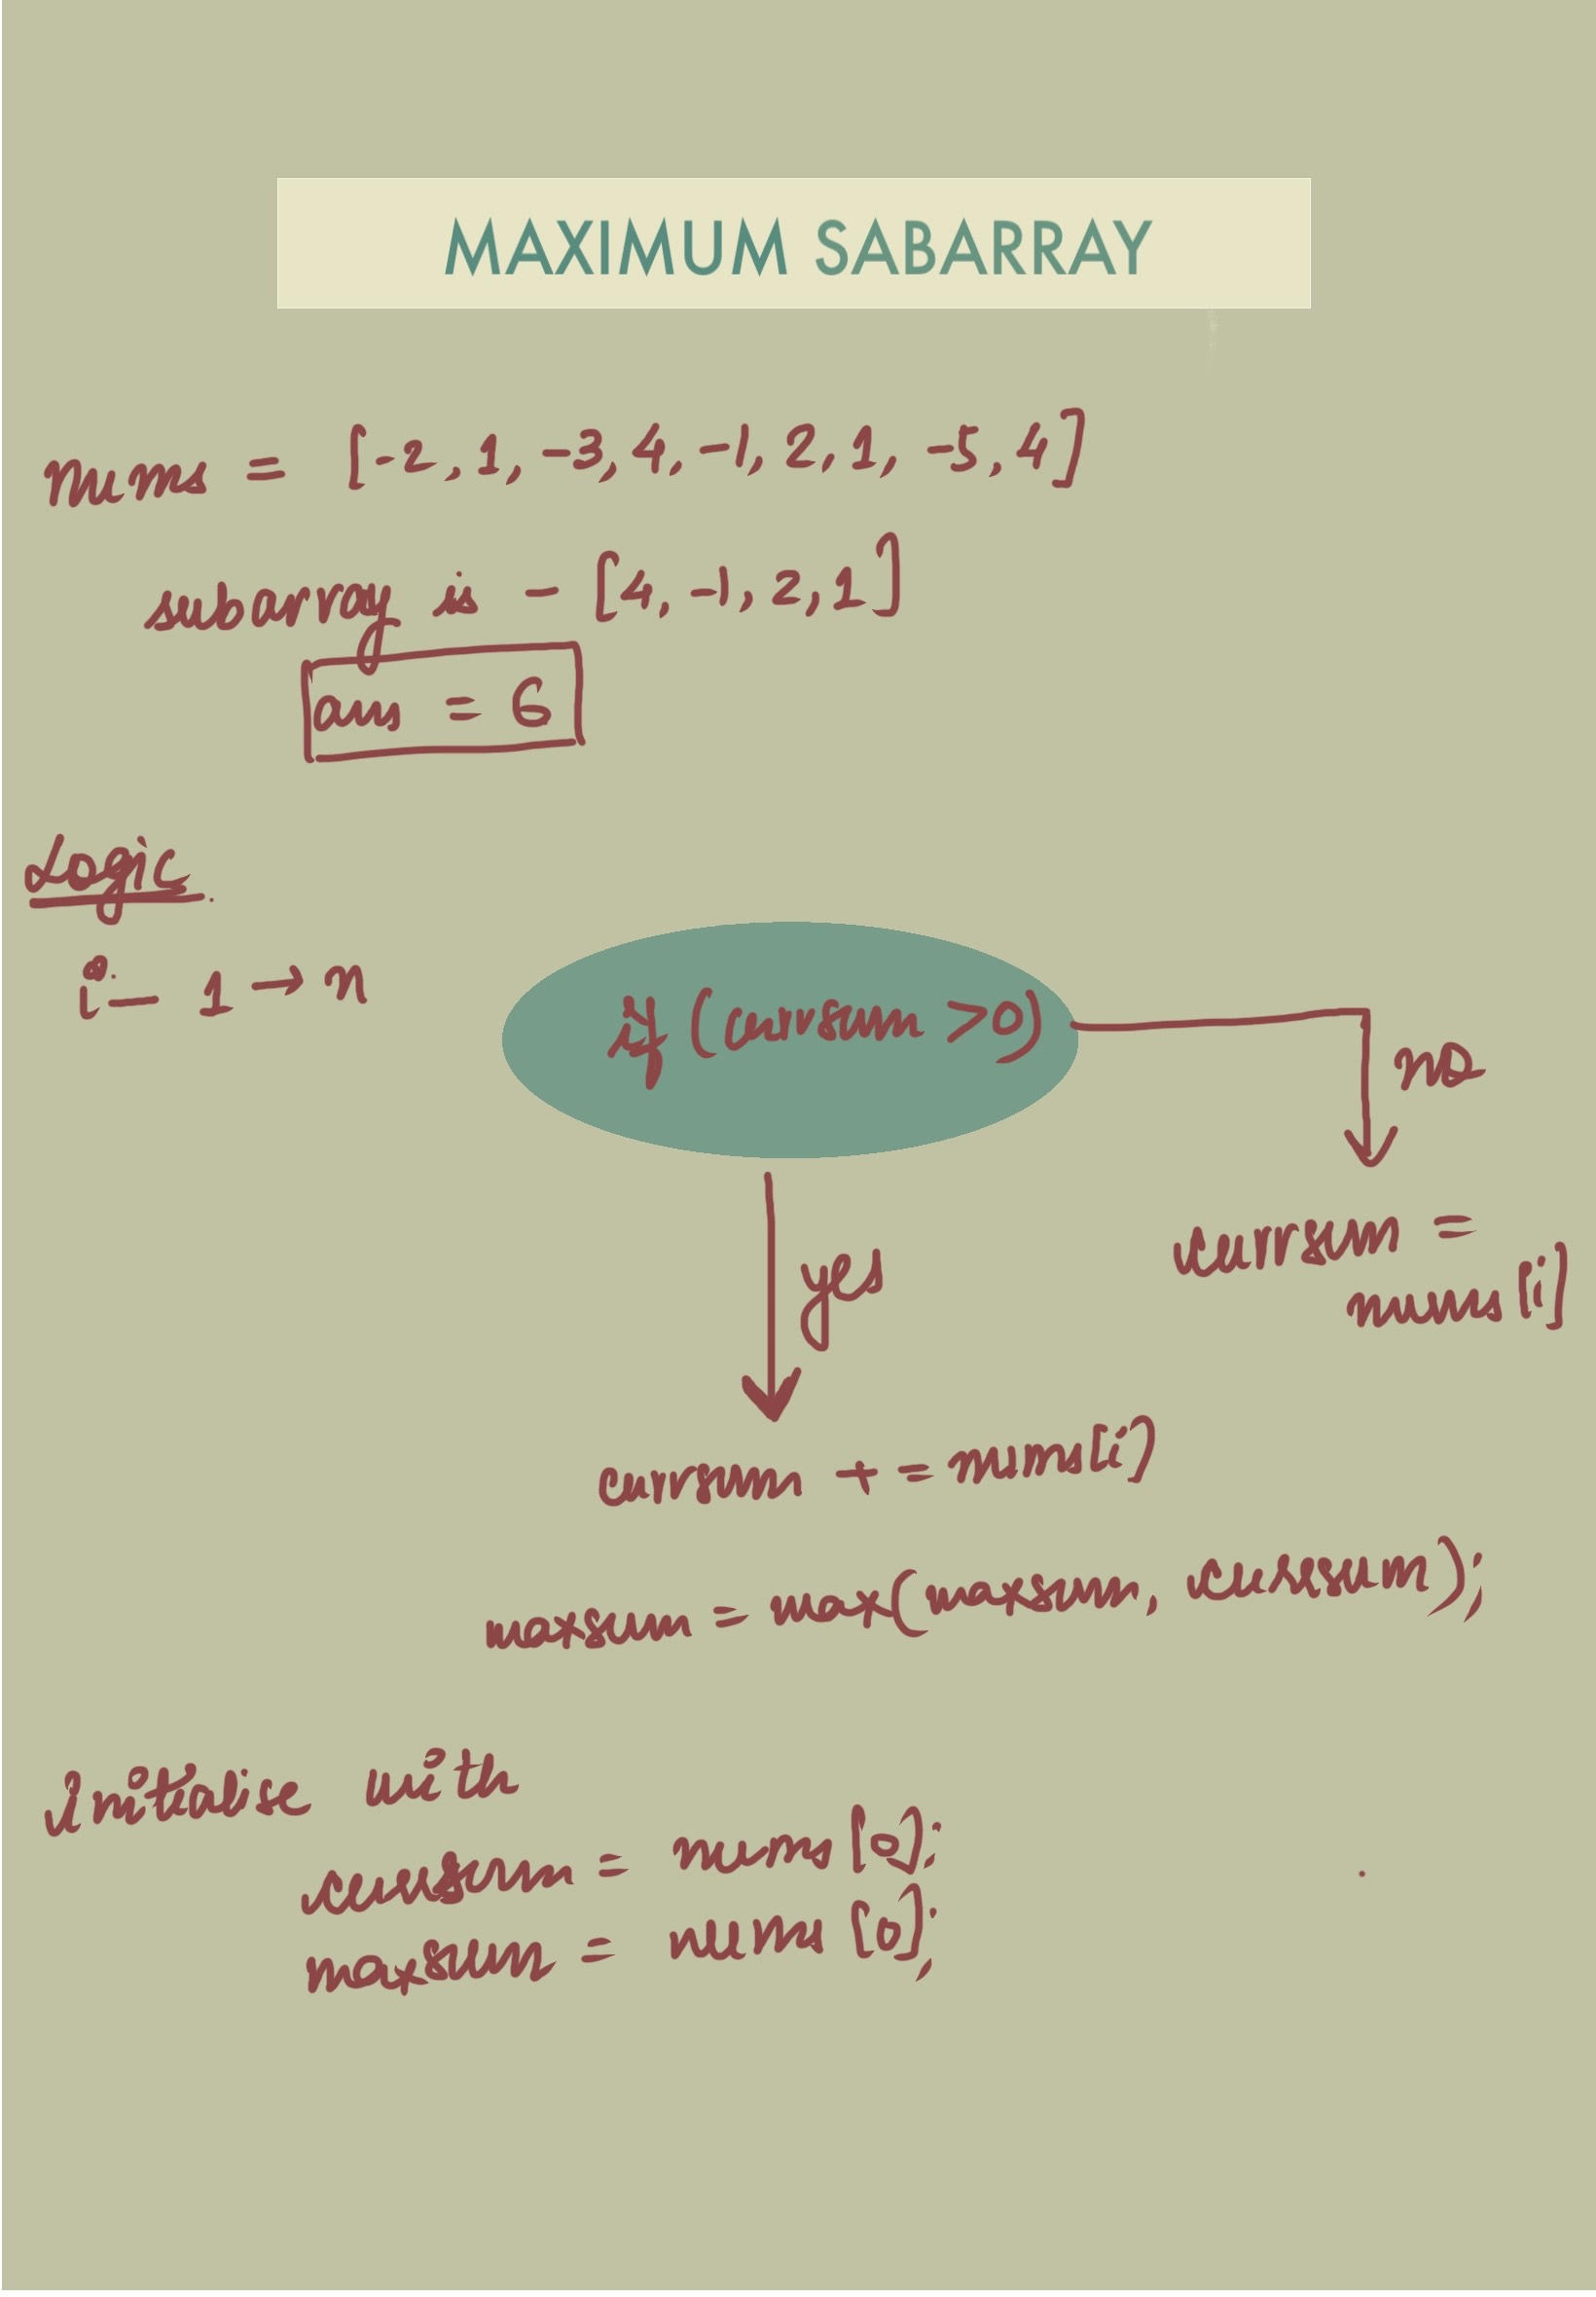 MAXIMUM SABARRAY
nums = [-2, 1, -3, 4, -1, 2, 1, -5, 4]
subarray is - [4, -1, 2, 1]
ans = 6
Logic
i - 1 → n
if (currsum >0)
no
currsum =
nums[i]
yes
currsum += nums[i]
maxsum = max(maxsum, currsum);
initialise with
currsum = nums[0];
maxsum = nums[0];